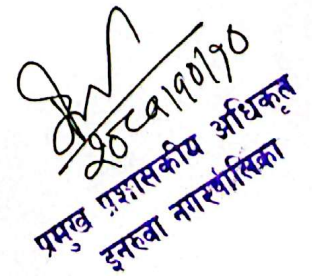 २०८१।१०।१०
प्रमुख प्रशासकीय अधिकृत
इनरुवा नगरपालिका